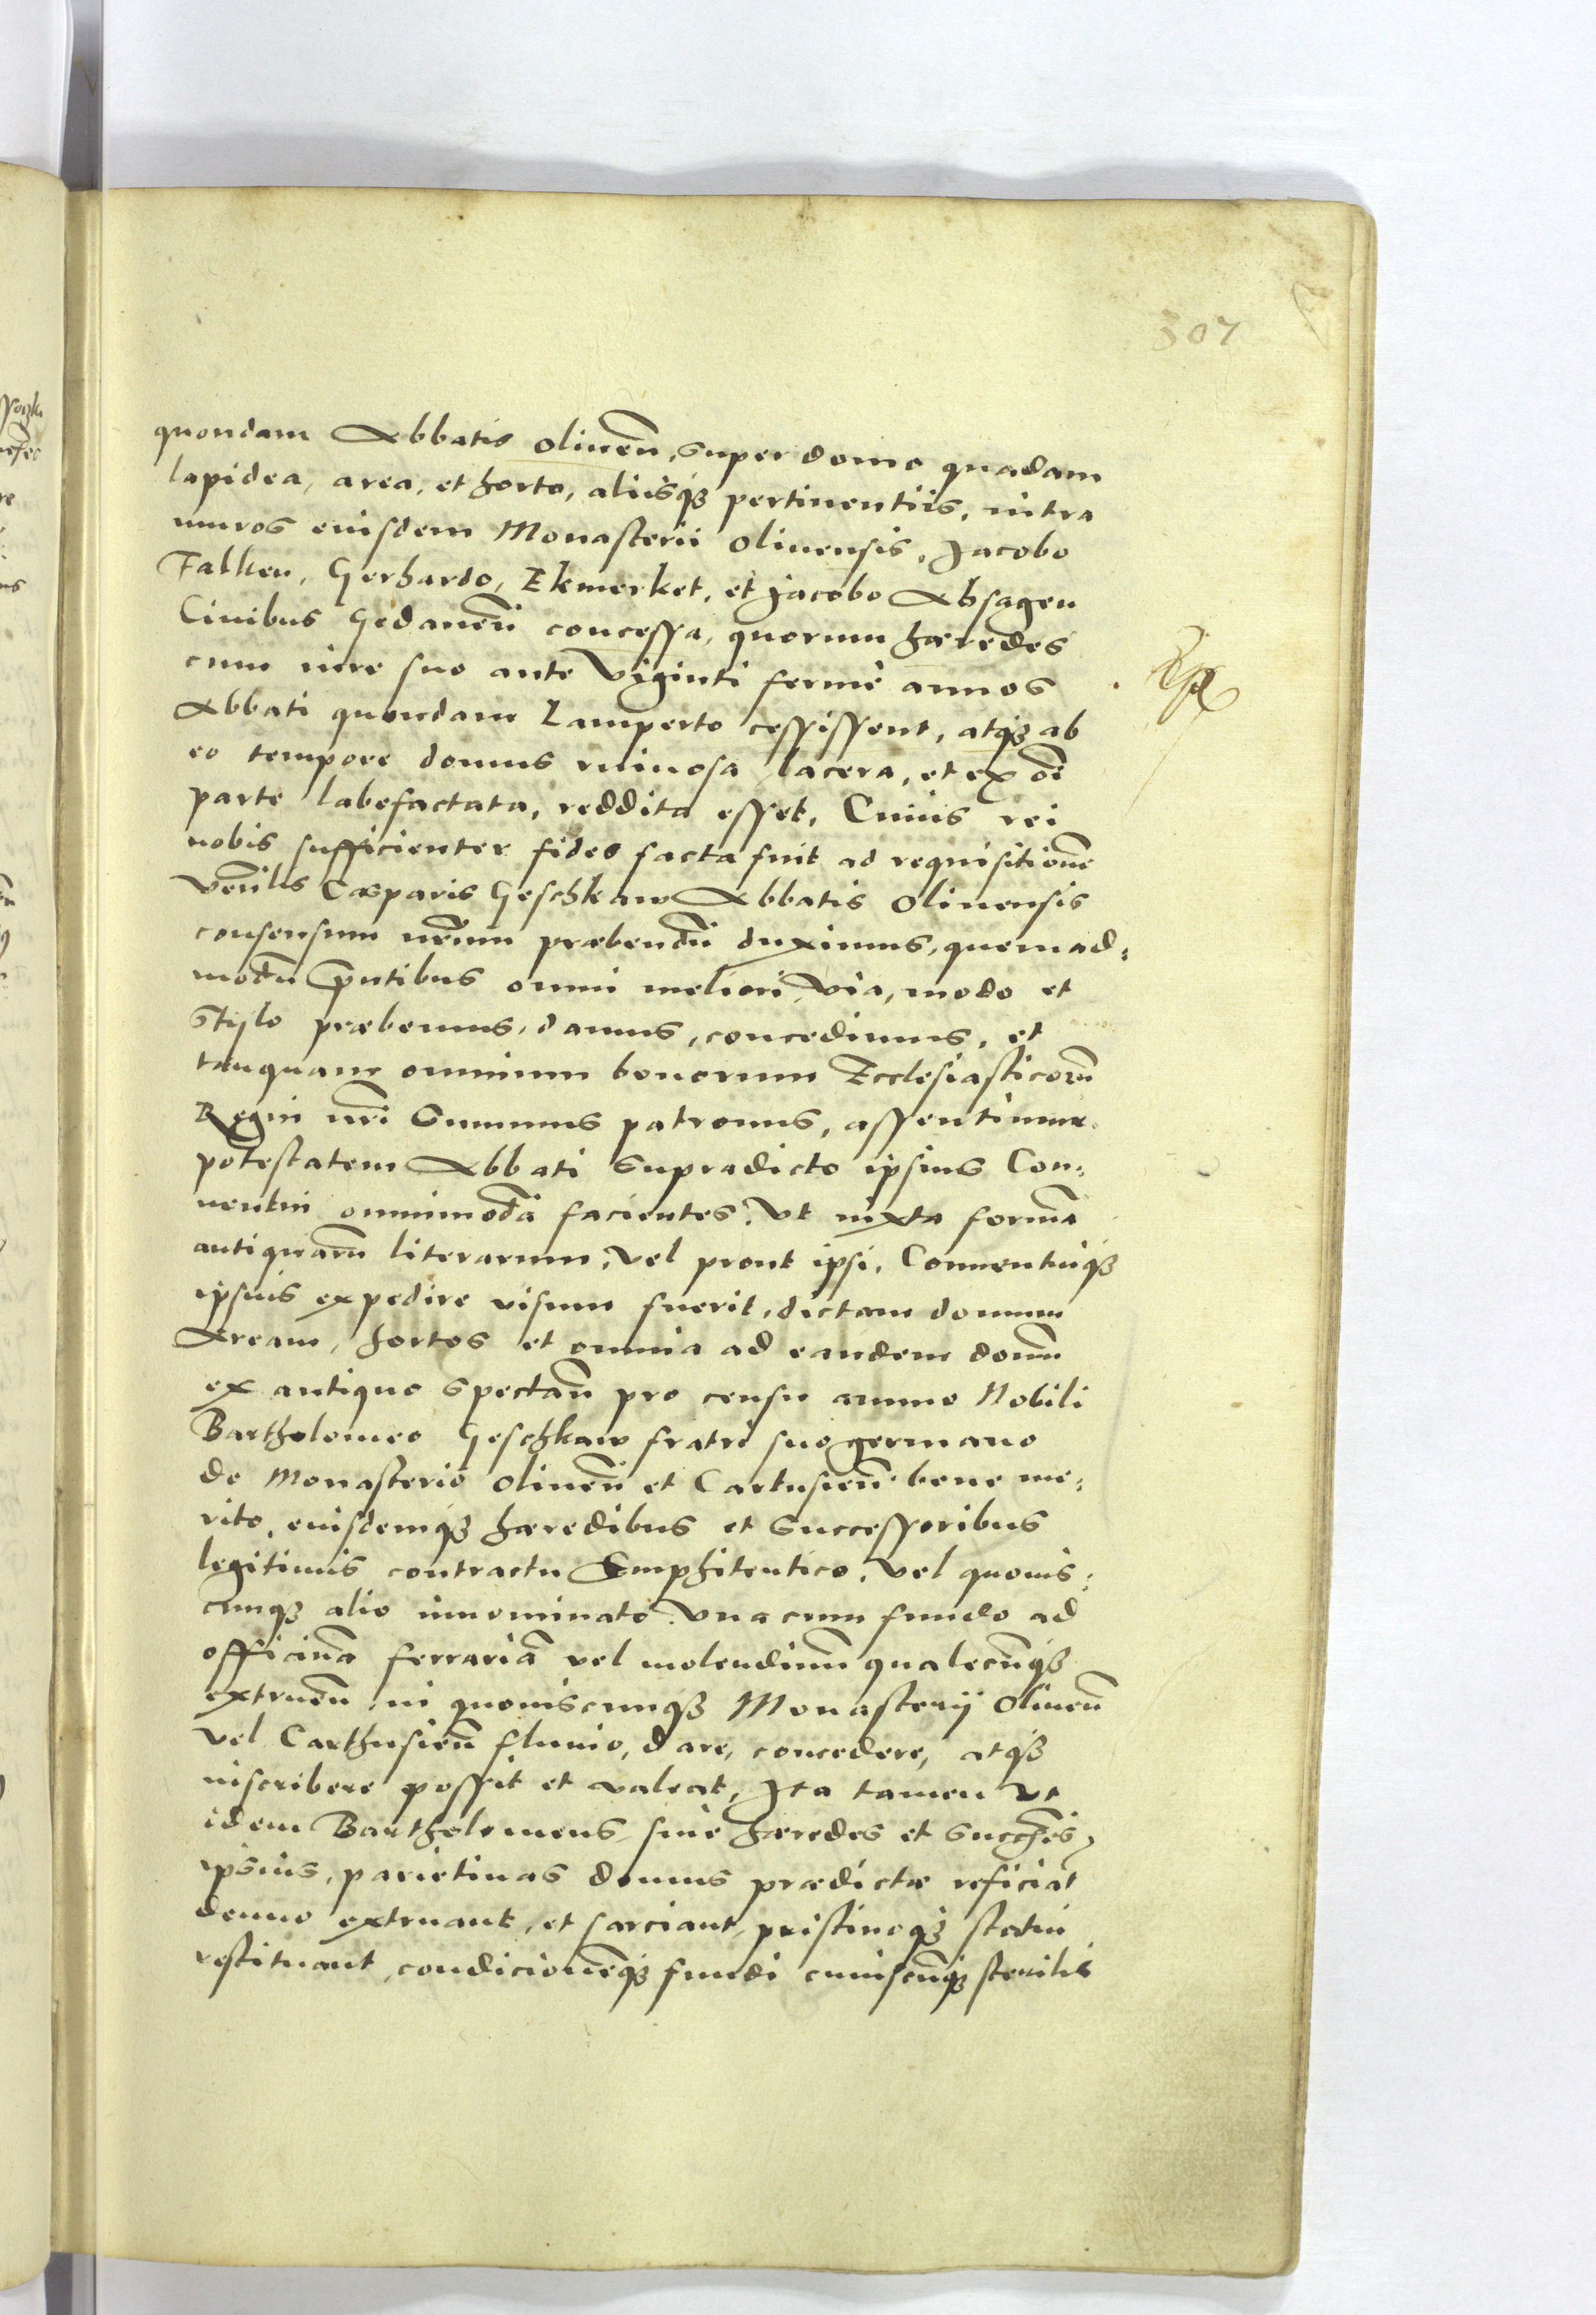 307
quondam Abbatis Oliven̄, super domo quadam
lapidea, area, et horto, aliisq₃ pertinentiis, intra
muros eiusdem Monasterii Olivensis, Jacobo
Falken, Gerhardo, Ekmerket, et Jacobo Absagen
Civibus Gedanen̄ concessa, quorum hæredes
cum iure suo ante viginti fermè annos
Abbati quondam Lamperto cessissent, atq₃ ab
eo tempore domus ruinosa lacera, et ex oī
parte labefactata, reddita esset, Cuius rei
nobis sufficienter fides facta fuit ad requisitionē
Ven̄lis Casparis Geschkaw Abbatis Olivensis
consensum nr̄um præbendū duximus, quemad:
modū p̄ntibus omni meliori via, modo et
stylo præbemus, damus, concedimus, et
tanquam omnium bonorum Ecclesiasticorū
Regni nr̄i Summus patronus, assentimur.
potestatem Abbati supradicto ipsius Con:
ventui omnimodā facientes, Ut iuxta formā
antiquarū literarum, vel prout ipsi, Conventuiq₃
ipsius expedire visum fuerit, dictam domum
Aream, hortos et omnia ad eandem domū
ex antiquo spectan̄ pro censu annuo Nobili
Bartholomeo Geschkaw fratri suo germano
de Monasterio Oliven̄ et Cartusien̄ bene me:
rito, eiusdemq₃ hæredibus et Successoribus
legitimis contractu Emphiteutico, vel quovis:
cunq₃ alio innominato una cum fundo ad
officinā ferrariā vel molendinū qualecūq₃
extruen̄ in quoviscunq₃ Monasterij Oliven̄
vel Carthusien̄ fluvio, dare, concedere, atq₃
inscribere possit et valeat, Ita tamen ut
idem Bartholomeus sive hæredes et succ̄es
ipsius, parietinas domus prædictæ reficiāt
denuo extruant, et sarciant, pristinoq₃ statui
restituant, condicionēq₃ fundi cuiuscūq₃ sterilis